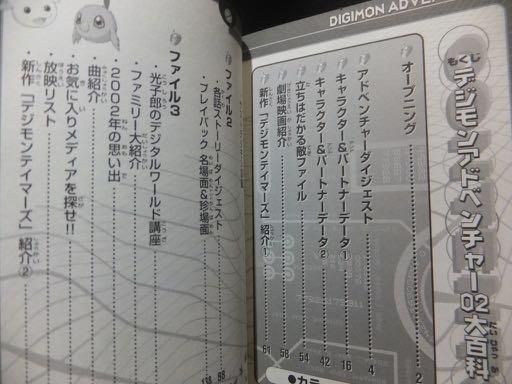 DIGIMON ADVE
もくじ
デジモンアドベンチャー02大百科
オープニング……2
アドベンチャーダイジェスト……4
キャラクター&パートナーデータ①……16
キャラクター&パートナーデータ②……42
立ちはだかる敵ファイル……54
劇場映画紹介……58
新作「デジモンテイマーズ」紹介①……61
●カラ
ファイル2
・各話ストーリーダイジェスト……98
・プレイバック 名場面&珍場面……138
ファイル3
・光子郎のデジタルワールド講座
・ファミリー大紹介
・2002年の思い出
・曲紹介
・お気に入りメディアを探せ!!
・放映リスト
・新作「デジモンテイマーズ」紹介②